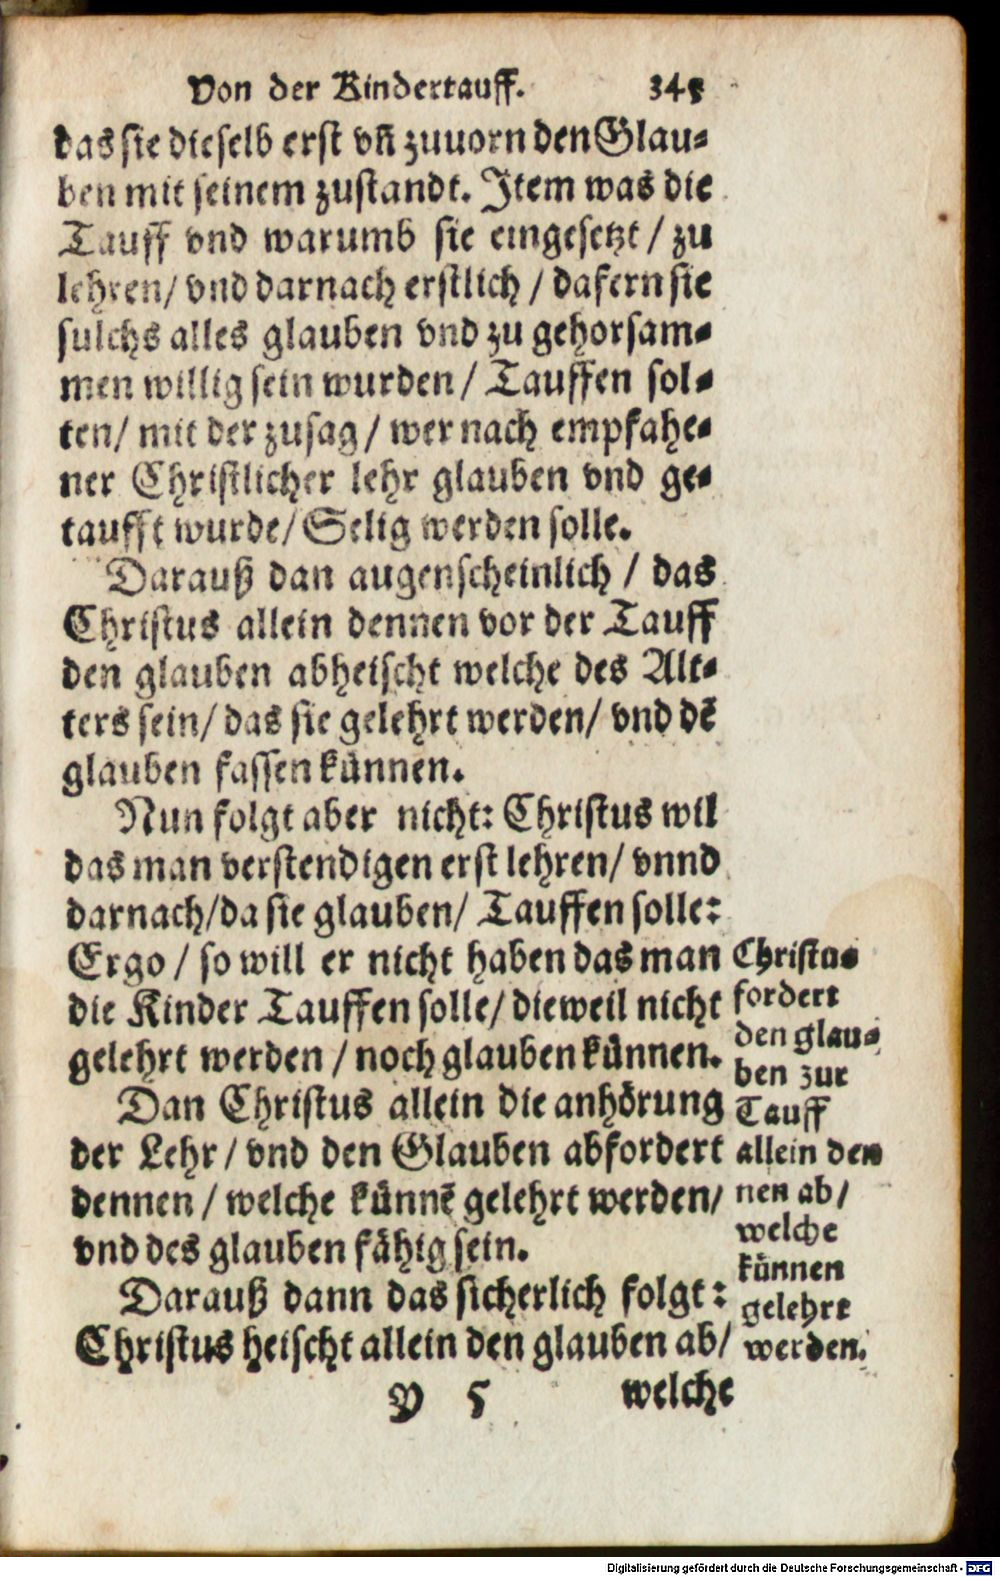 Von der Kindertauff. 345
das sie dieselb erst vñ zuuorn den Glau-
ben mit seinem zustandt. Item was die
Tauff vnd warumb sie eingesetzt / zu
lehren / vnd darnach erstlich / dafern sie
sulchs alles glauben vnd zu gehorsam-
men willig sein wurden / Tauffen sol-
ten / mit der zusag / wer nach empfahe-
ner Christlicher lehr glauben vnd ge-
taufft wurde / Selig werden solle.
Darauß dan augenscheinlich / das
Christus allein dennen vor der Tauff
den glauben abheischt welche des Alt-
ters sein / das sie gelehrt werden / vnd dē
glauben fassen künnen.
Nun folgt aber nicht: Christus wil
das man verstendigen erst lehren / vnnd
darnach / da sie glauben / Tauffen solle:
Ergo / so will er nicht haben das man
die Kinder Tauffen solle / dieweil nicht
gelehrt werden / noch glauben künnen.
Dan Christus allein die anhörung
der Lehr / vnd den Glauben abfordert
dennen / welche künnē gelehrt werden /
vnd des glauben fähig sein.
Darauß dann das sicherlich folgt:
Christus heischt allein den glauben ab /
Christus
fordert
den glau-
ben zur
Tauff
allein den
nen ab /
welche
künnen
gelehrt
werden.
Y 5 welche
Digitalisierung gefördert durch die Deutsche Forschungsgemeinschaft - DFG